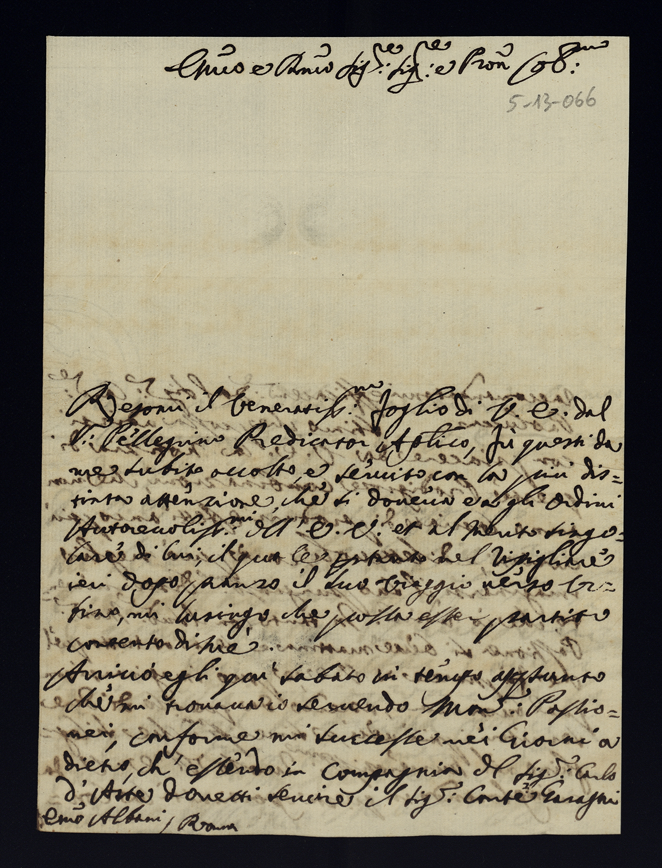 Emo e Rmo Sigre: Sigre: e Pron Colmo:
5-13-066
Resomi il veneratissmo: foglio di V. E. dal
P: Pellegrino Predicator Aplico, fu questi da
me subito accolto, e servito con la più dis=
tinta attenzione, che si doveva e agli ordini
Autorevolissmi: dell' E. V: et al merito singo=
lare di lui, il quale
ieri dopo pranzo il suo viaggio verso Ur=
bino, mi lusingo che possa esser partito
contento di me.
Arrivò egli qui sabato in tempo appunto
che mi trovavo io servendo Monsr: Passio=
nei, conforme mi successe nei Giorni a
dietro, ch' essendo in Compagnia del Sigr: Carlo
d' Aste dovetti servire il Sigr: Conte
Emo Albani / Roma